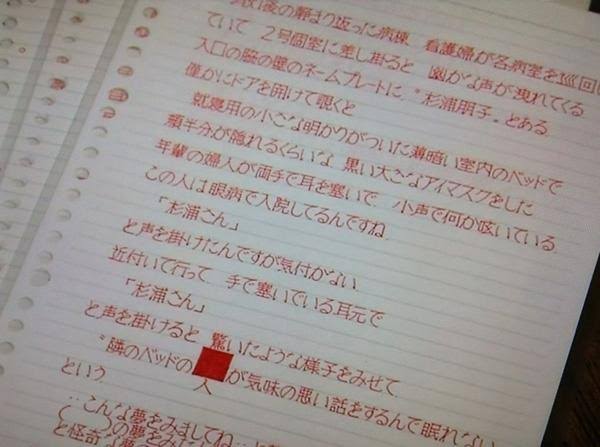 後の静まり返った病棟 看護婦が各病室を巡回
ていて 2号個室に差し掛ると 幽かな声が洩れてくる
入口の脇の壁のネームプレートに〝杉浦朋子〟とある
僅かにドアを開けて覗くと
就寝用の小さな明かりがついた薄暗い室内のベッドで
顔半分が隠れるくらいな 黒い大きなアイマスクをした
年輩の婦人が両手で耳を塞いで 小声で何か呟いている
この人は眼病で入院してるんですね
「杉浦さん」
と声を掛けたんですが気付かない
近付いて行って 手で塞いでいる耳元で
「杉浦さん」
と声を掛けると 驚いたような様子をみせて
〝隣のベッドの 人が気味の悪い話をするんで眠れない
という
…こんな夢をみましてね…と
の夢をみ
と怪奇な夢を